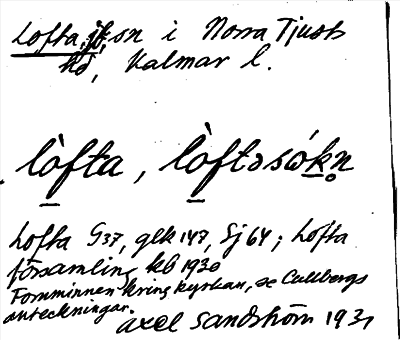 Lofta, sn i Norra Tjusts
hd, Kalmar l.
lòfta, lòftəsókn̥
Lofta G37, glk 147, Sj 64; Lofta
församling kb 1930
Fornminnen kring kyrkan, se Cullbergs
anteckningar.
Axel Sandström 193